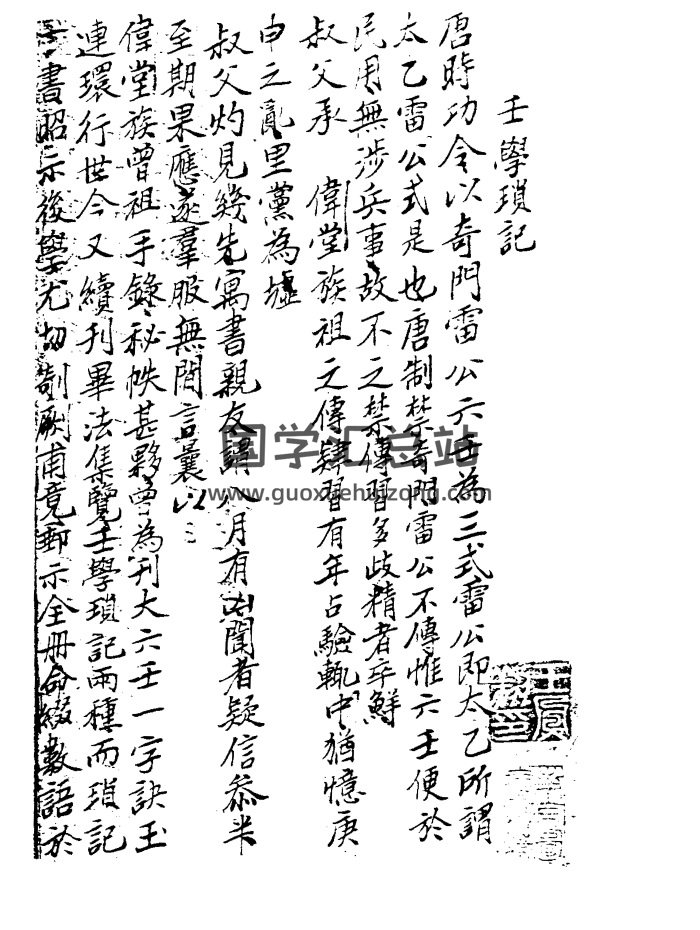 壬學瑣記
唐時功令以奇門雷公六壬為三式雷公即太乙所謂
太乙雷公式是也唐制禁奇門雷公不傳惟六壬便於
民用無涉兵事故不之禁傳習多歧精者卒鮮
叔父承 偉堂族祖之傳肄習有年占驗輒中猶憶庚
申之亂里黨為墟
叔父灼見幾先寓書親友謂八月有凶聞者疑信參半
至期果應遂羣服無間言曩以
偉堂族曾祖手錄秘帙甚夥曾為刊大六壬一字訣玉
連環行世今又續刊畢法集覽壬學瑣記兩種而瑣記
一書昭示後學尤切剞劂甫竟郵示全冊命綴數語於
国学汇总站
www.guoxuehuizong.com